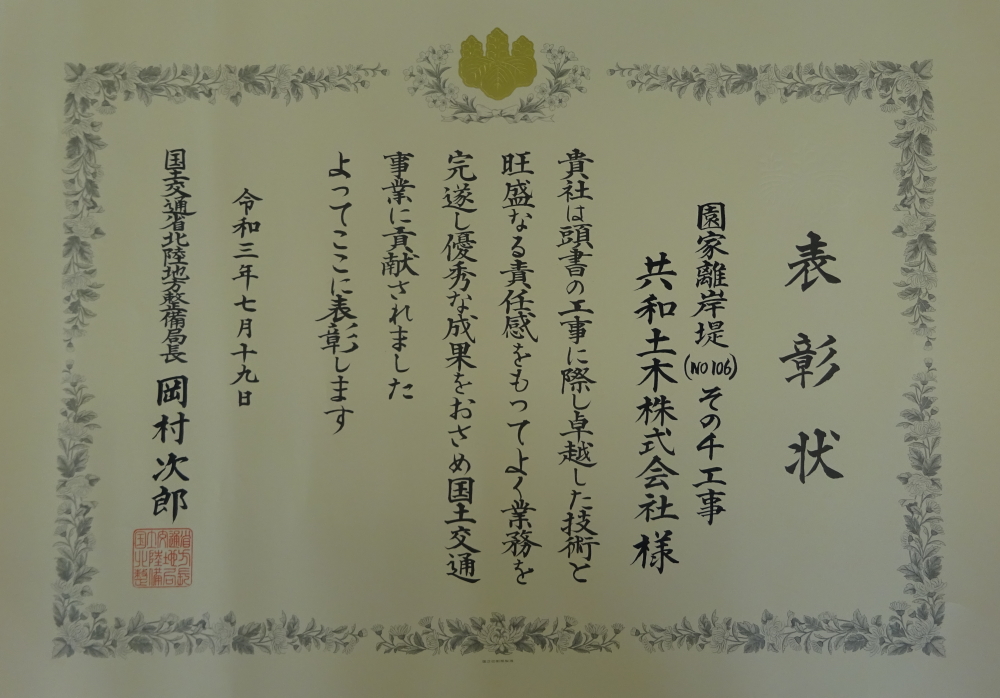 表彰状
園家離岸堤(NO106)その千工事
共和土木株式会社様
貴社は頭書の工事に際し卓越した技術と
旺盛なる責任感をもってよく業務を
完遂し優秀な成果をおさめ国土交通
事業に貢献されました
よってここに表彰します
令和三年七月十九日
国土交通省北陸地方整備局長 岡村次郎